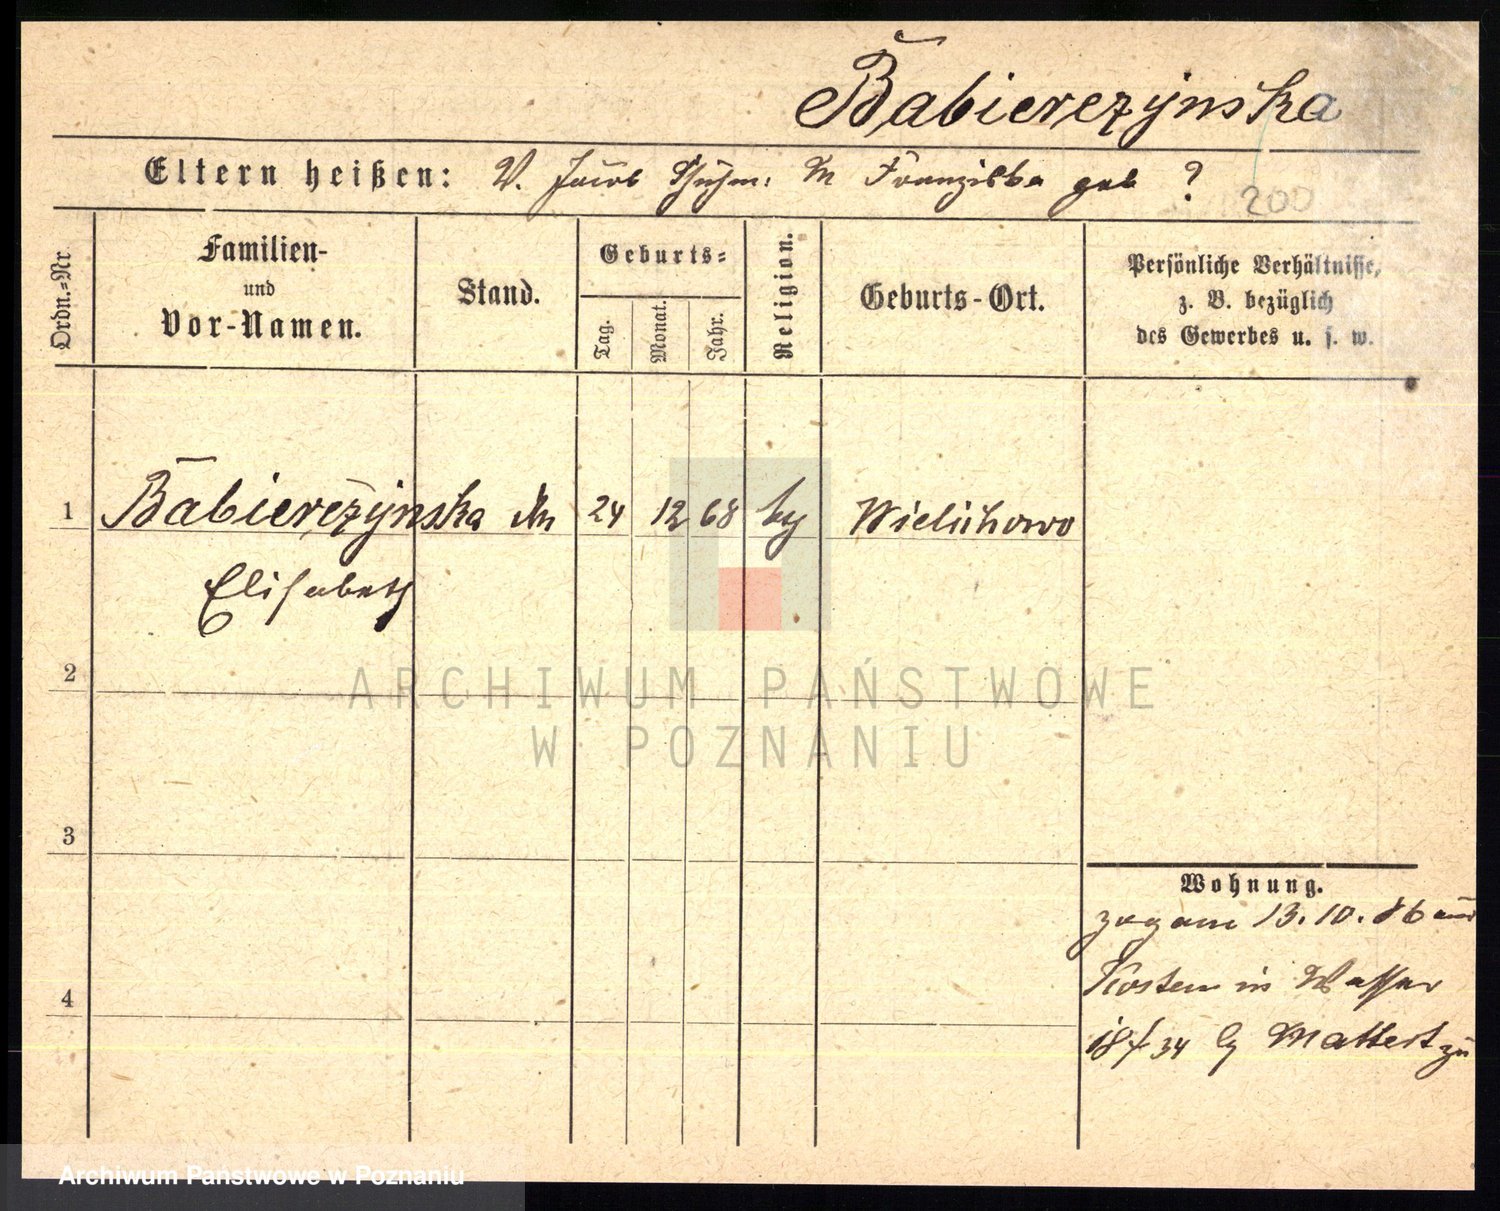 Babierezynska
Eltern heißen: V. Jacob Schuhm: M Franziska geb ?
200
Ordn.=Nr
Familien-
und
Vor-Namen.
Stand.
Geburts=
Tag.
Monat.
Jahr.
Religion.
Geburts-Ort.
Persönliche Verhältnisse,
z. B. bezüglich
des Gewerbes u. s. w.
1 Babierezynska 24 12 68 Wielichowo
Elisabeth
2
ARCHIWUM PAŃSTWOWE
W POZNANIU
3
Wohnung.
13.10.86 aus
4
Kosten in Wasser
18/34 Mattest zu
Archiwum Państwowe w Poznaniu